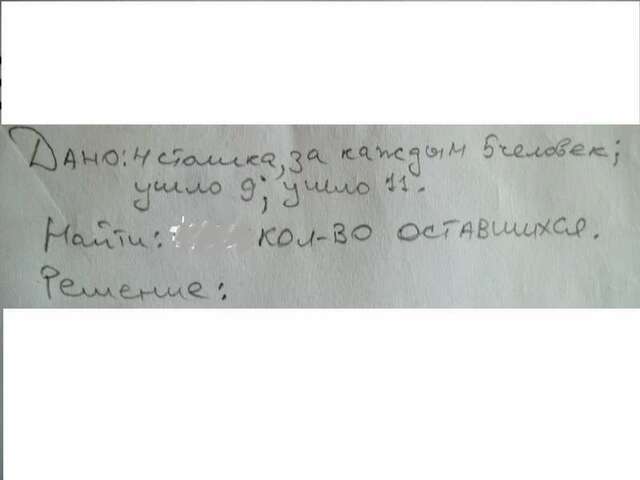 Дано: 4 столика, за каждым 5 человек;
ушло 9; ушло 11.
Найти: кол-во оставшихся.
Решение: